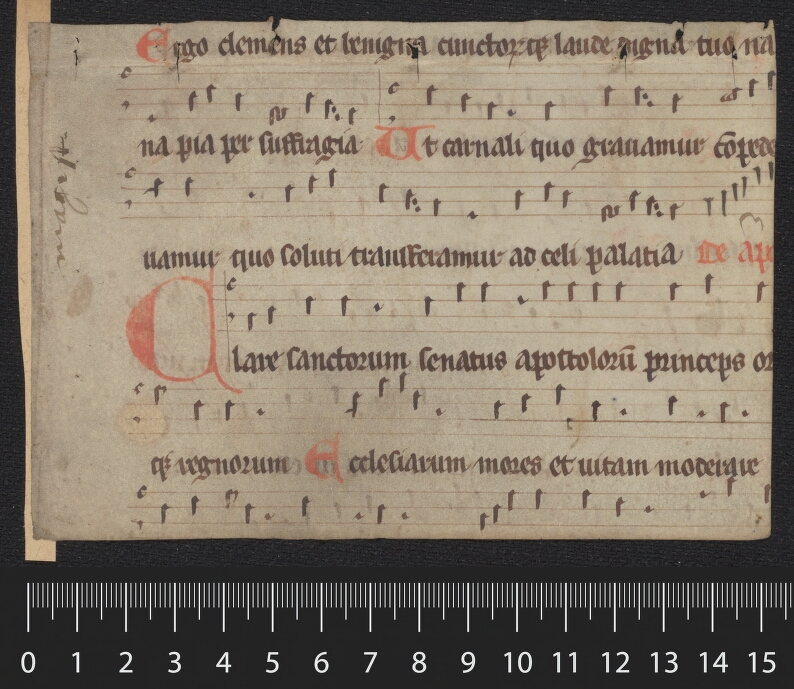 Ergo clemens et benigna cunctorꝫqꝫ laude digna tuo na
na pia per suffragia Ut carnali quo grauamur cōpede
uamur quo soluti transferamur ad celi palatia De apo
Clare sanctorum senatus apostolorū princeps or
qꝫ regnorum Ecclesiarum mores et uitam moderare
0 1 2 3 4 5 6 7 8 9 10 11 12 13 14 15